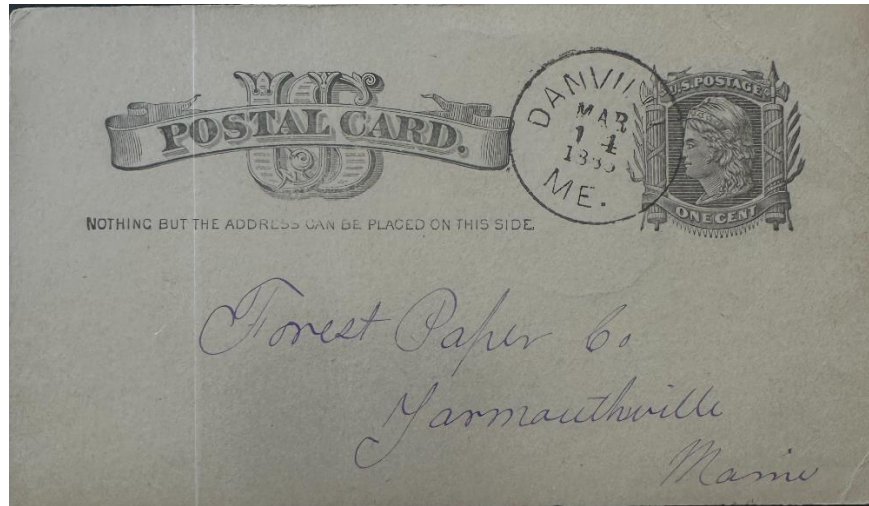 US
POSTAL CARD.
NOTHING BUT THE ADDRESS CAN BE PLACED ON THIS SIDE.
MAR
14
ME.
U.S. POSTAGE
ONE CENT
Forest Paper Co
Yarmouthville
Maine